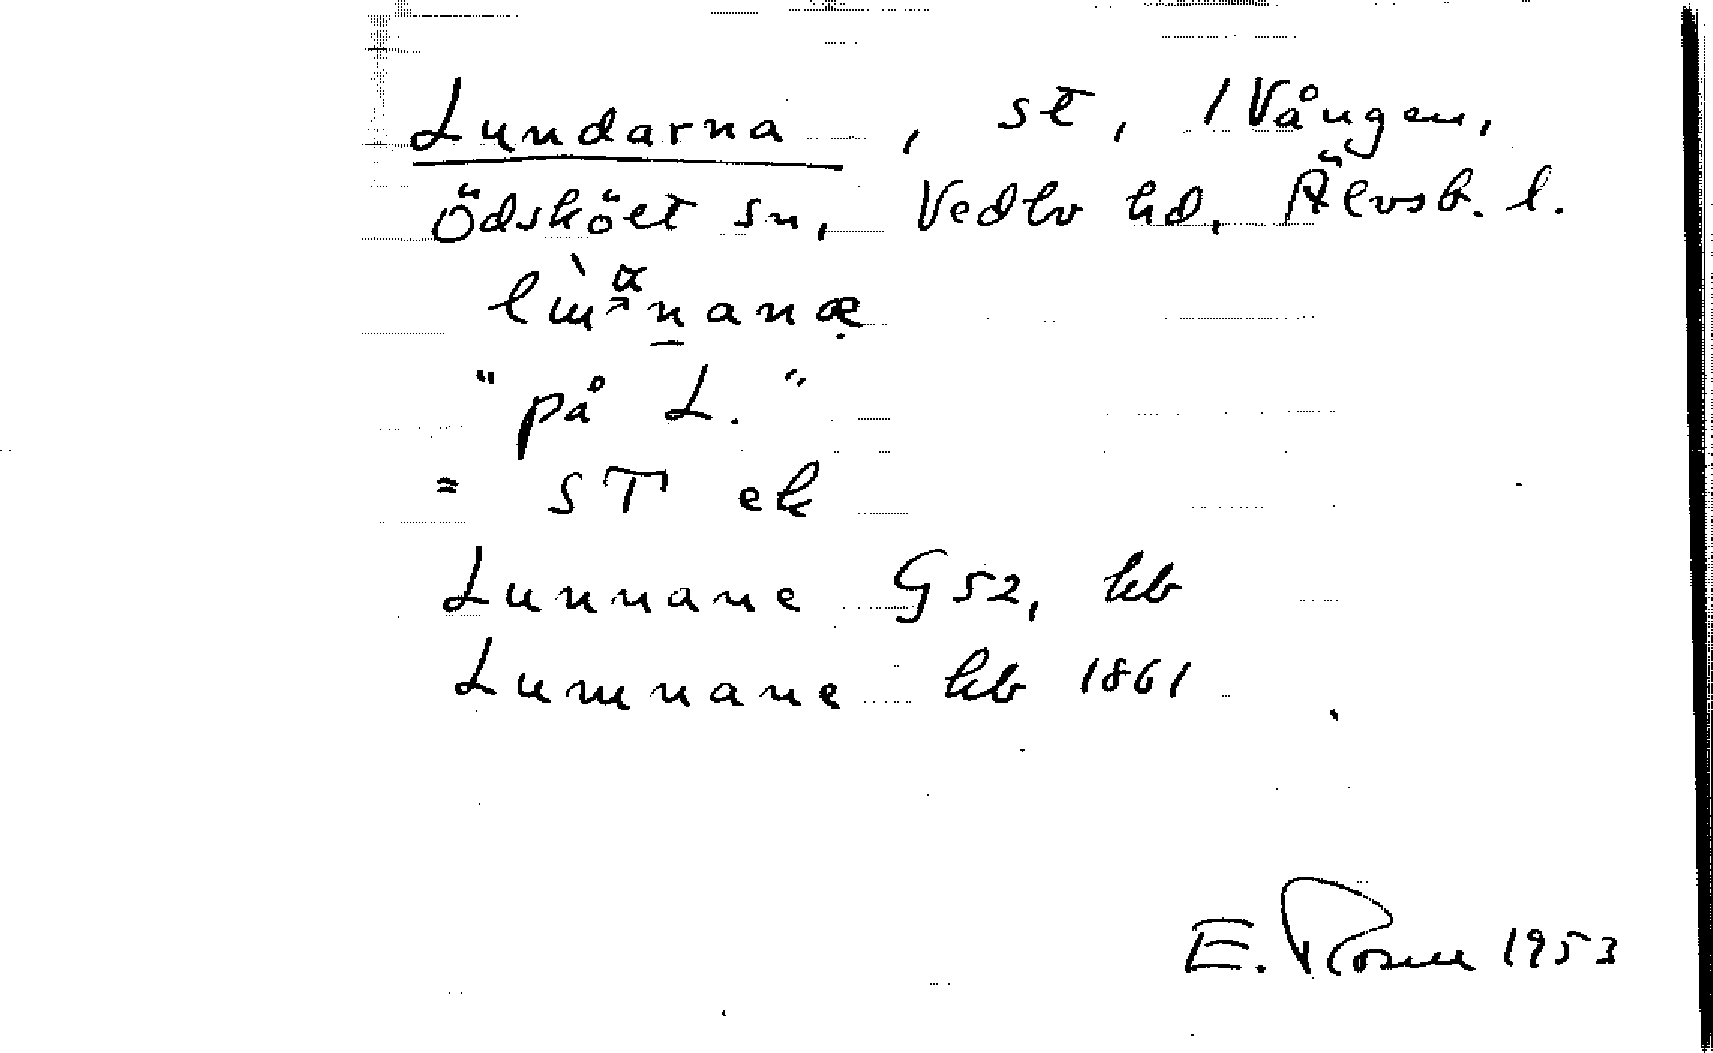 Lundarna, st, 1 Vången,
Ödskölt sn, Vedbo hd, Älvsb. l.
"på L."
= ST ek
Lunnane G52, kb
Lumnane kb 1861
E. Rosén 1953